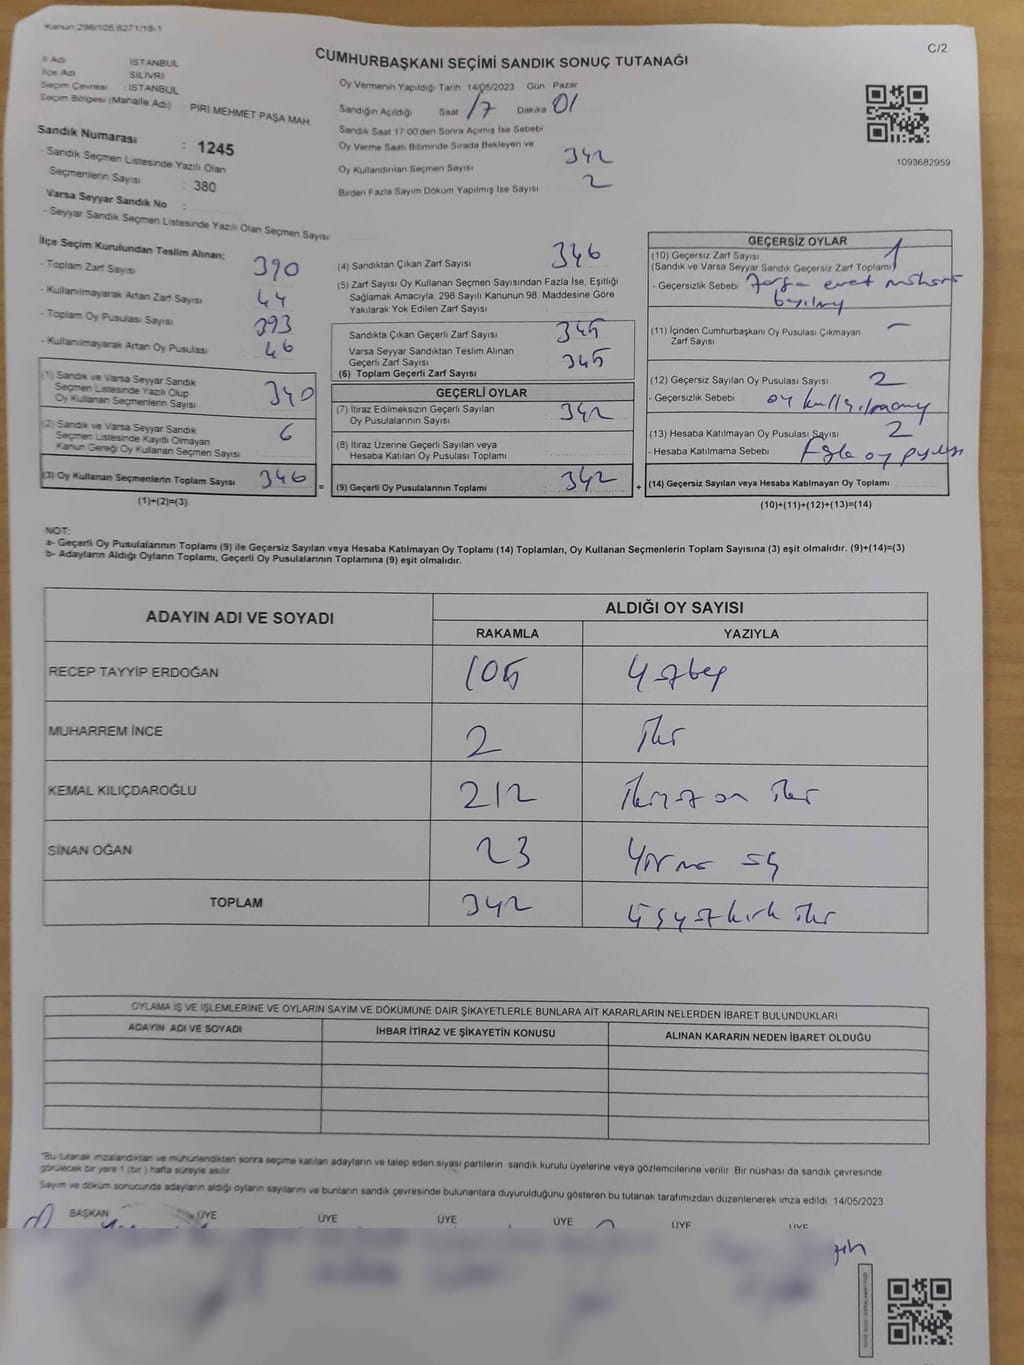 Kanun:298/108,6271/18-1
C/2
CUMHURBAŞKANI SEÇİMİ SANDIK SONUÇ TUTANAĞI
İl Adı İSTANBUL
İlçe Adı SİLİVRİ
Seçim Çevresi : İSTANBUL
Seçim Bölgesi (Mahalle Adı) PİRİ MEHMET PAŞA MAH.
Sandık Numarası : 1245
- Sandık Seçmen Listesinde Yazılı Olan
Seçmenlerin Sayısı : 380
Varsa Seyyar Sandık No :
- Seyyar Sandık Seçmen Listesinde Yazılı Olan Seçmen Sayısı
Oy Vermenin Yapıldığı Tarih 14/05/2023 Gün Pazar
Sandığın Açıldığı Saat 17 Dakika 01
Sandık Saat 17:00'den Sonra Açımış İse Sebebi
Oy Verme Saati Bitiminde Sırada Bekleyen ve
Oy Kullandırılan Seçmen Sayısı 342
Birden Fazla Sayım Döküm Yapılmış İse Sayısı 2
1093682959
İlçe Seçim Kurulundan Teslim Alınan;
- Toplam Zarf Sayısı 390
- Kullanılmayarak Artan Zarf Sayısı 44
- Toplam Oy Pusulası Sayısı 393
- Kullanılmayarak Artan Oy Pusulası 46
(1) Sandık ve Varsa Seyyar Sandık
Seçmen Listesinde Yazılı Olup
Oy Kullanan Seçmenlerin Sayısı 340
(2) Sandık ve Varsa Seyyar Sandık
Seçmen Listesinde Kayıtlı Olmayan
Kanun Gereği Oy Kullanan Seçmen Sayısı 6
(3) Oy Kullanan Seçmenlerin Toplam Sayısı 346
(1)+(2)=(3)
(4) Sandıktan Çıkan Zarf Sayısı 346
(5) Zarf Sayısı Oy Kullanan Seçmen Sayısından Fazla İse, Eşitliği
Sağlamak Amacıyla; 298 Sayılı Kanunun 98. Maddesine Göre
Yakılarak Yok Edilen Zarf Sayısı
Sandıkta Çıkan Geçerli Zarf Sayısı 345
Varsa Seyyar Sandıktan Teslim Alınan
Geçerli Zarf Sayısı 345
(6) Toplam Geçerli Zarf Sayısı
GEÇERLİ OYLAR
(7) İtiraz Edilmeksizin Geçerli Sayılan
Oy Pusulalarının Sayısı 342
(8) İtiraz Üzerine Geçerli Sayılan veya
Hesaba Katılan Oy Pusulası Toplamı
= (9) Geçerli Oy Pusulalarının Toplamı 342 +
GEÇERSİZ OYLAR
(10) Geçersiz Zarf Sayısı 1
(Sandık ve Varsa Seyyar Sandık Geçersiz Zarf Toplamı)
- Geçersizlik Sebebi Zarfa evet mührü
(11) İçinden Cumhurbaşkanı Oy Pusulası Çıkmayan
Zarf Sayısı —
(12) Geçersiz Sayılan Oy Pusulası Sayısı 2
- Geçersizlik Sebebi oy kullanılmamış
(13) Hesaba Katılmayan Oy Pusulası Sayısı 2
- Hesaba Katılmama Sebebi Fazla oy pusulası
(14) Geçersiz Sayılan veya Hesaba Katılmayan Oy Toplamı
(10)+(11)+(12)+(13)=(14)
NOT:
a- Geçerli Oy Pusulalarının Toplamı (9) ile Geçersiz Sayılan veya Hesaba Katılmayan Oy Toplamı (14) Toplamları, Oy Kullanan Seçmenlerin Toplam Sayısına (3) eşit olmalıdır. (9)+(14)=(3)
b- Adayların Aldığı Oyların Toplamı, Geçerli Oy Pusulalarının Toplamına (9) eşit olmalıdır.
ADAYIN ADI VE SOYADI ALDIĞI OY SAYISI
RAKAMLA YAZIYLA
RECEP TAYYİP ERDOĞAN 105 Yüzbeş
MUHARREM İNCE 2 İki
KEMAL KILIÇDAROĞLU 212 İkiyüz on iki
SİNAN OĞAN 23 Yirmi üç
TOPLAM 342 Üçyüz kırk iki
OYLAMA İŞ VE İŞLEMLERİNE VE OYLARIN SAYIM VE DÖKÜMÜNE DAİR ŞİKAYETLERLE BUNLARA AİT KARARLARIN NELERDEN İBARET BULUNDUKLARI
ADAYIN ADI VE SOYADI İHBAR İTİRAZ VE ŞİKAYETİN KONUSU ALINAN KARARIN NEDEN İBARET OLDUĞU
*Bu tutanak imzalandıktan ve mühürlendikten sonra seçime katılan adayların ve talep eden siyasi partilerin sandık kurulu üyelerine veya gözlemcilerine verilir. Bir nüshası da sandık çevresinde
görülecek bir yere 1 (bir ) hafta süreyle asılır.
Sayım ve döküm sonucunda adayların aldığı oyların sayılarını ve bunların sandık çevresinde bulunanlara duyurulduğunu gösteren bu tutanak tarafımızdan düzenlenerek imza edildi. 14/05/2023
BAŞKAN ÜYE ÜYE ÜYE ÜYE ÜYE ÜYE